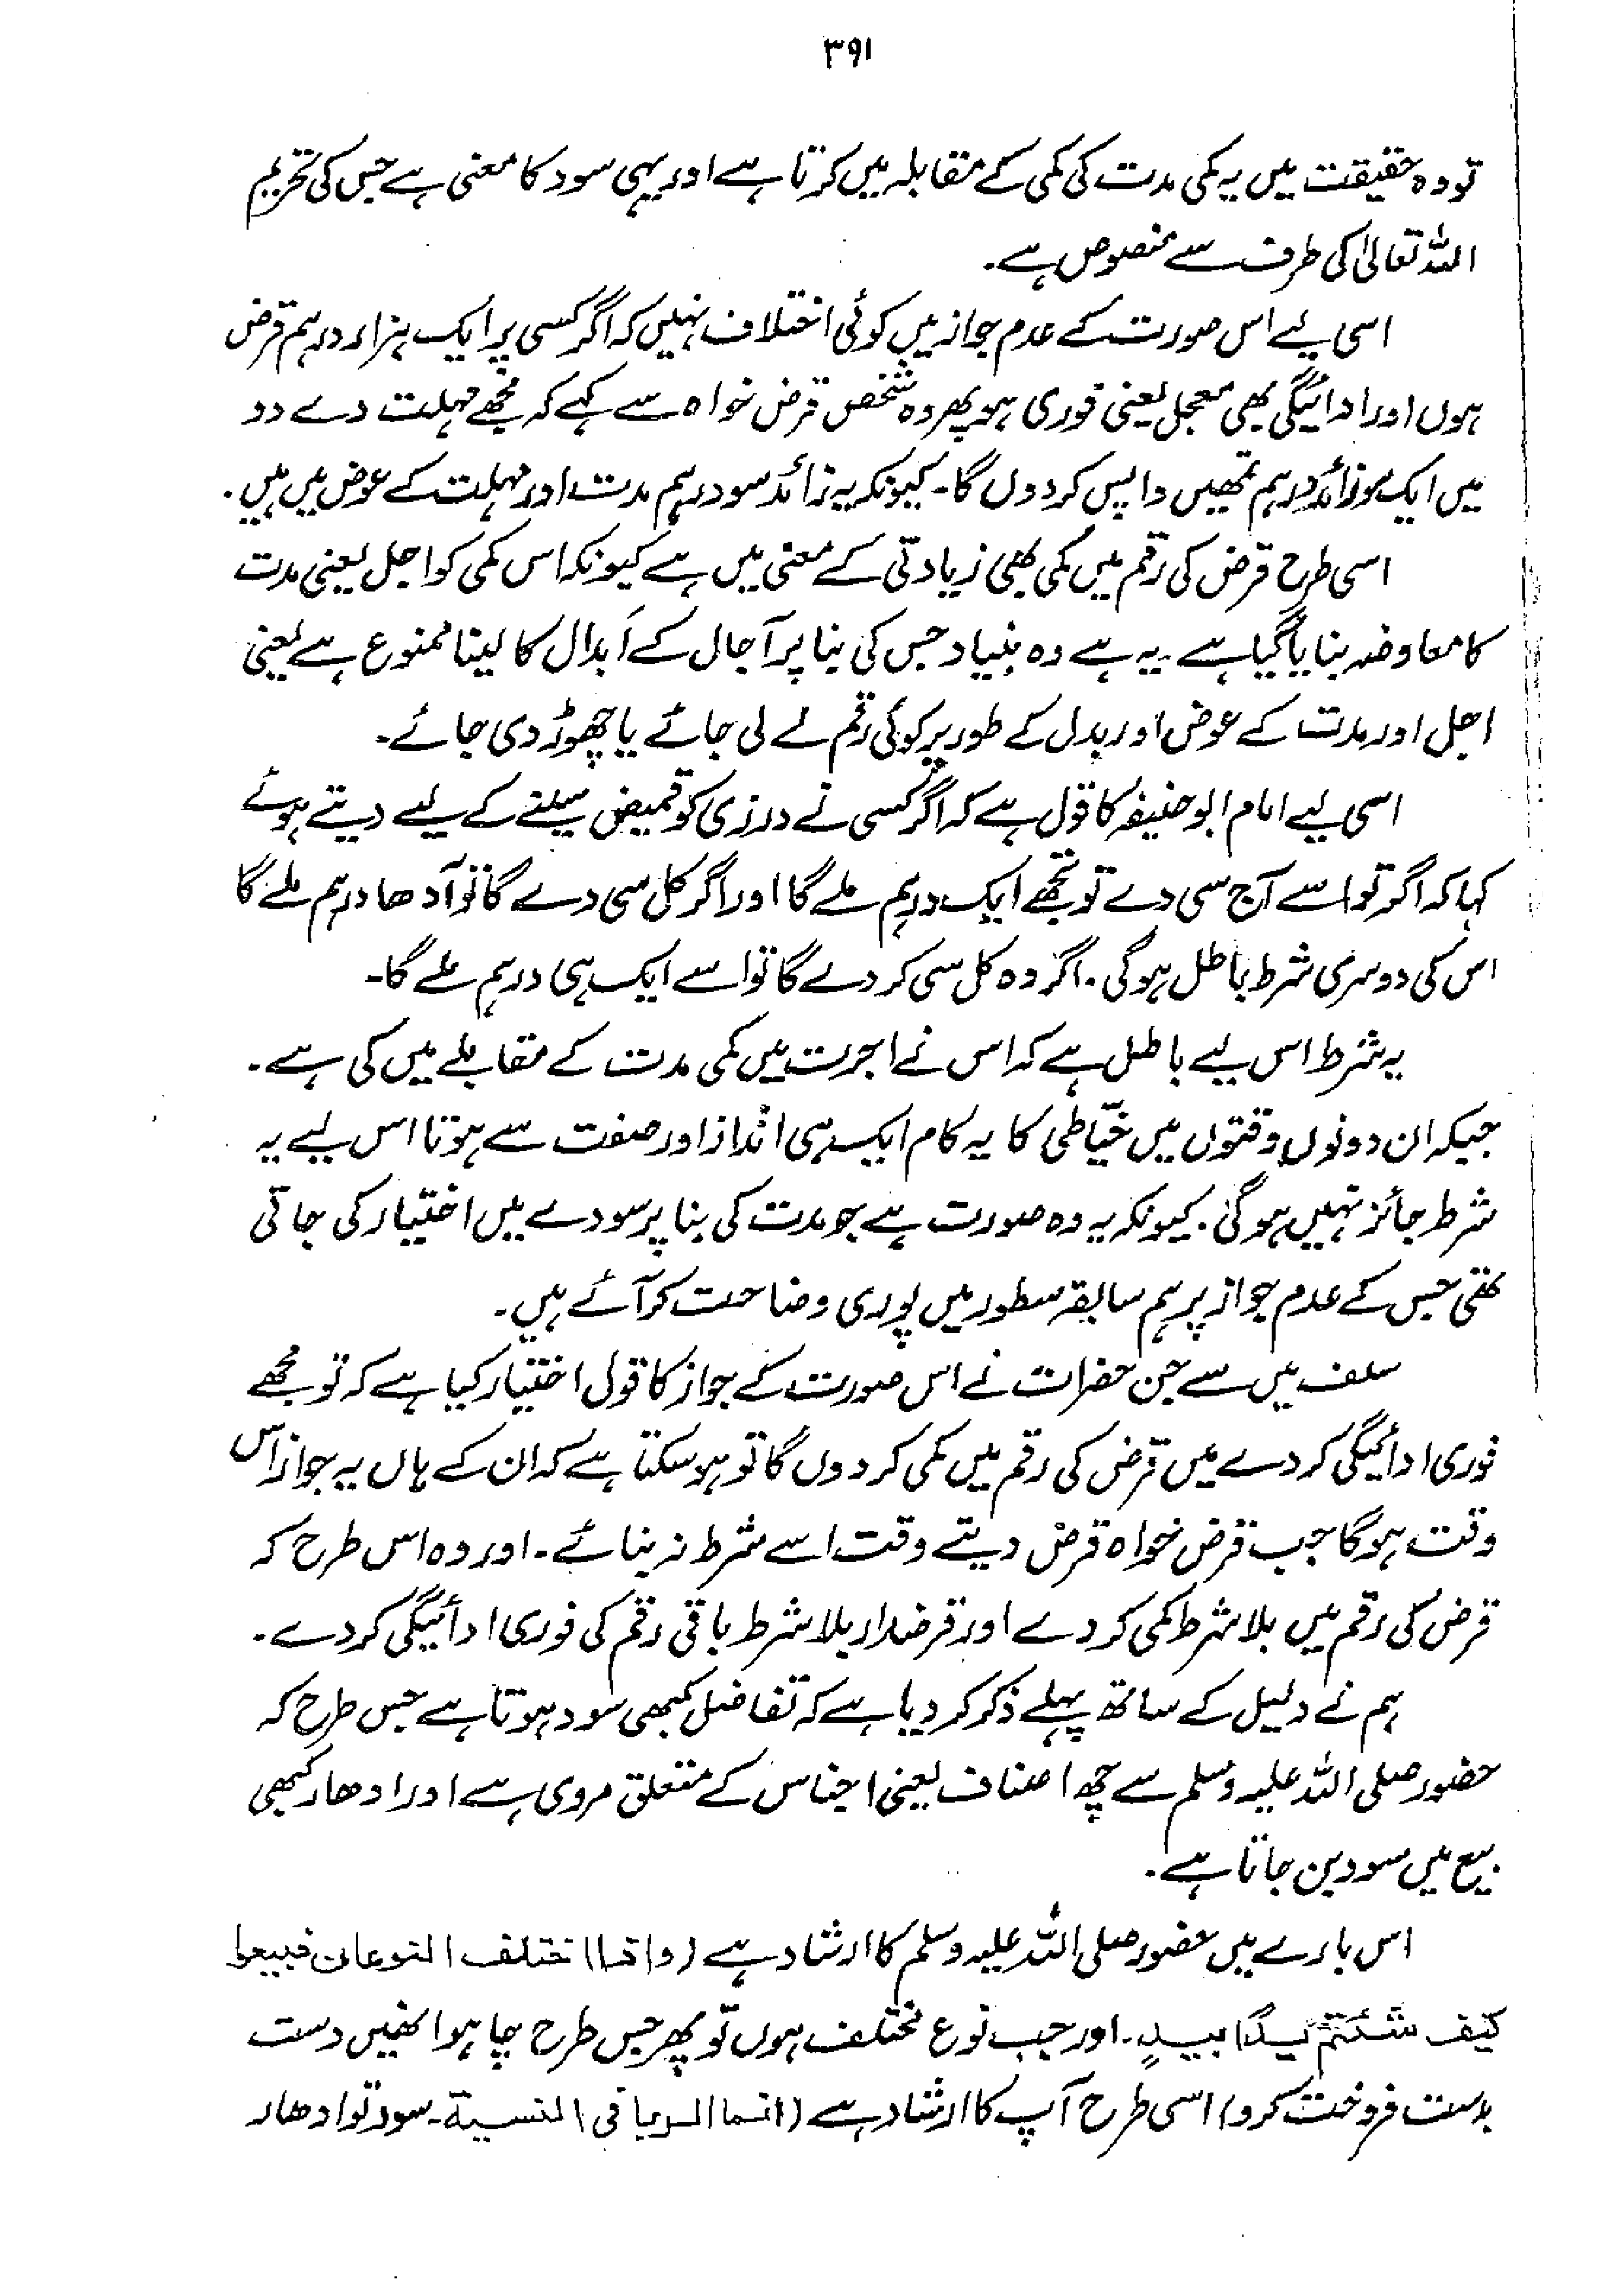 ۳۹۱
تو وہ حقیقت میں یہ کمی مدت کی کمی کے مقابلہ میں کرتا ہے اور یہی سود کا معنی ہے جس کی تحریم
اللہ تعالیٰ کی طرف سے منصوص ہے۔
اسی لیے اس صورت کے عدم جواز میں کوئی اختلاف نہیں کہ اگر کسی پر ایک ہزار درہم قرض
ہوں اور ادائیگی بھی معجل یعنی فوری ہو پھر وہ شخص قرض خواہ سے کہے کہ مجھے مہلت دے دو
میں ایک سو زائد درہم تمھیں واپس کر دوں گا۔ کیونکہ یہ زائد سو درہم مدت اور مہلت کے عوض میں ہیں۔
اسی طرح قرض کی رقم میں کمی بھی زیادتی کے معنی میں ہے کیونکہ اس کمی کو اجل یعنی مدت
کا معاوضہ بنایا گیا ہے۔ یہ ہے وہ بنیاد جس کی بنا پر آجال کے اَبدال کا لینا ممنوع ہے یعنی
اجل اور مدت کے عوض اور بدل کے طور پر کوئی رقم لے لی جائے یا چھوڑ دی جائے۔
اسی لیے امام ابو حنیفہ کا قول ہے کہ اگر کسی نے درزی کو قمیض سینے کے لیے دیتے ہوئے
کہا کہ اگر تو اسے آج سی دے تو تجھے ایک درہم ملے گا اور اگر کل سی دے گا تو آدھا درہم ملے گا
اس کی دوسری شرط باطل ہوگی۔ اگر وہ کل سی کر دے گا تو اسے ایک ہی درہم ملے گا۔
یہ شرط اس لیے باطل ہے کہ اس نے اجرت میں کمی مدت کے مقابلے میں کی ہے۔
جبکہ ان دونوں وقتوں میں خیّاطی کا یہ کام ایک ہی انداز اور صفت سے ہوتا اس لیے یہ
شرط جائز نہیں ہوگی۔ کیونکہ یہ وہ صورت ہے جو مدت کی بنا پر سودے میں اختیار کی جاتی
تھی جس کے عدم جواز پر ہم سابقہ سطور میں پوری وضاحت کر آئے ہیں۔
سلف میں سے جن حضرات نے اس صورت کے جواز کا قول اختیار کیا ہے کہ تو مجھے
فوری ادائیگی کر دے میں قرض کی رقم میں کمی کر دوں گا تو ہو سکتا ہے کہ ان کے ہاں یہ جواز اس
وقت ہوگا جب قرض خواہ قرض دیتے وقت اسے شرط نہ بنائے۔ اور وہ اس طرح کہ
قرض کی رقم میں بلا شرط کمی کر دے اور قرضدار بلا شرط باقی رقم کی فوری ادائیگی کر دے۔
ہم نے دلیل کے ساتھ پہلے ذکر کر دیا ہے کہ تفاضل کبھی سود ہوتا ہے جس طرح کہ
حضور صلی اللہ علیہ وسلم سے چھ اصناف یعنی اجناس کے متعلق مروی ہے اور ادھار کبھی
بیع میں سود بن جاتا ہے۔
اس بارے میں حضور صلی اللہ علیہ وسلم کا ارشاد ہے (واذا اختلف النوعان فبیعوا
کیف شئتم یدًا بیدٍ۔ اور جب نوع مختلف ہوں تو پھر جس طرح چاہو انھیں دست
بدست فروخت کرو) اسی طرح آپ کا ارشاد ہے (انما الربا فی النسیة۔ سود تو ادھار